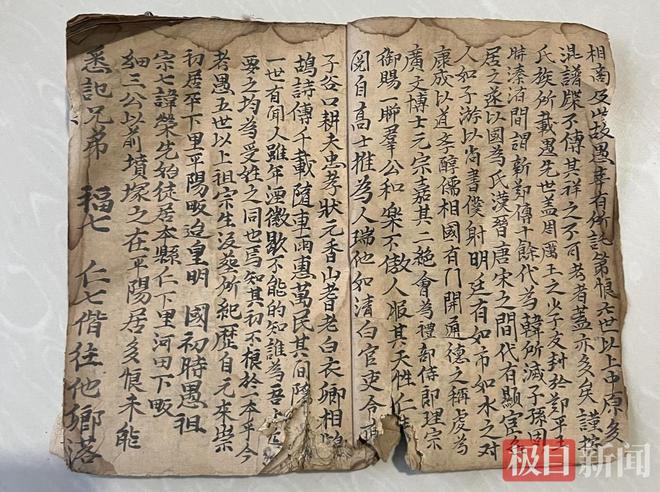 相南及此披愚年有所記第恨元世以上中原多
混譜牒不傳其祥之不可考者蓋亦多矣謹按
氏族所載愚先世蓋周厲王之少子友封於鄭平
時溱洧間謂新鄭傳十餘代為韓所滅子孫因
居之遂以國為氏漢晉唐宋之間代有顯宦
人如子游以尚書僕射明廷有如市如水之对
康成以道季醇儒相國有門開通德之稱虔為
廣文博士元宗嘉其二絕會為禮部侍郎理宗
御賜一聯羣公和樂不傲人服其天性仁
閱自高士推為人瑞他如清白官吏令
子谷口耕夫忠孝狀元香山耆老白衣卿相
鴣詩傳千載隨車雨惠萬民其間隱
一世有聞人雖年湮徵歇不能的知誰為
要之均為受姓之同也焉知其初不根於一本乎今
考愚五世以上祖宗生沒葬所紀歷自元來柴
初居平下里平陽畈迨皇明 國初時愚祖
宗七諱榮先始徙居本縣仁下里河田下畈
細三公以前墳塚之在平陽居多恨未能
悉記兄弟 福七 仁七偕往他鄉落
极目新闻